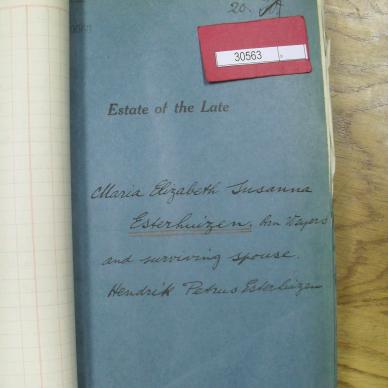 20.
30563
Estate of the Late
Maria Elizabeth Susanna
Esterhuizen, born Weyers
and surviving spouse.
Hendrik Petrus Esterhuizen